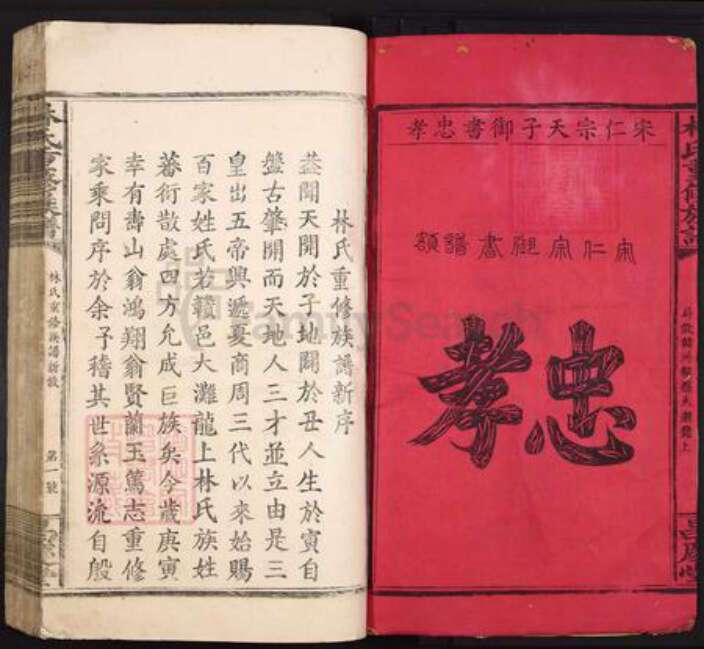 宋仁宗天子御書忠孝
宋仁宗御書譜額
忠孝
林氏重修族譜新序
蓋聞天開於子地闢於丑人生於寅自
盤古肇開而天地人三才並立由是三
皇出五帝興遞夏商周三代以來始賜
百家姓氏若贛邑大灘龍上林氏族姓
蕃衍散處四方允成巨族矣今歲庚寅
幸有壽山翁鴻翔翁賢蘭玉篤志重修
家乘問序於余子稽其世系源流自殷
林氏重修族譜
林氏重修族譜新敘
第一號
FamilySearch